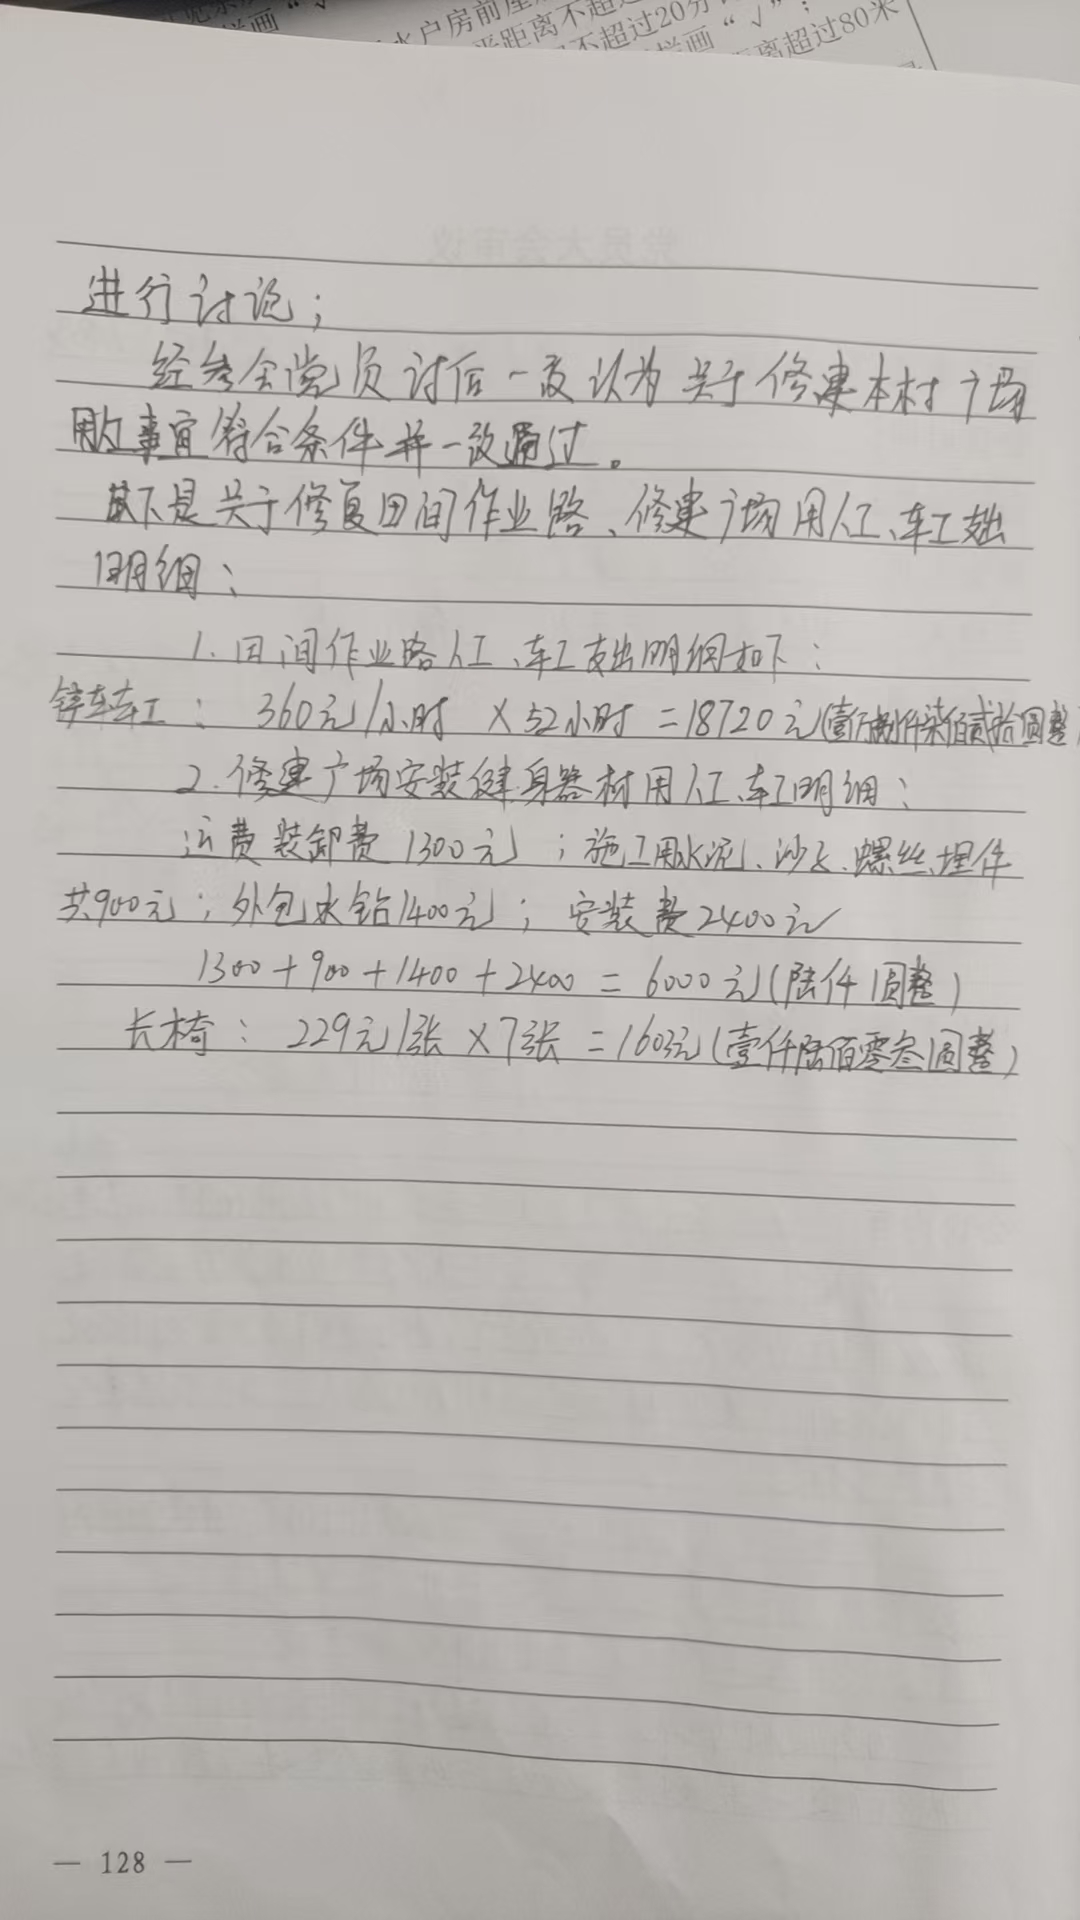 水户房前屋
平距离不超过
不超过20分
栏画“√”；
距离超过80米
栏画“√
进行讨论；
经参会党员讨后一致认为关于修建本村广场
用工事宜符合条件并一致通过。
以下是关于修复田间作业路、修建广场用人工、车工支出
明细：
1.田间作业路人工、车工支出明细如下：
铲车车工： 360元/小时 ×52小时 =18720元(壹万捌仟柒佰贰拾圆整)
2.修建广场安装健身器材用人工、车工明细：
运费装卸费1300元；施工用水泥、沙子、螺丝、埋件
共900元；外包水钻1400元；安装费2400元
1300+900+1400+2400=6000元(陆仟圆整)
长椅：229元/张×7张=1603元(壹仟陆佰零叁圆整)
党员大会审议
— 128 —